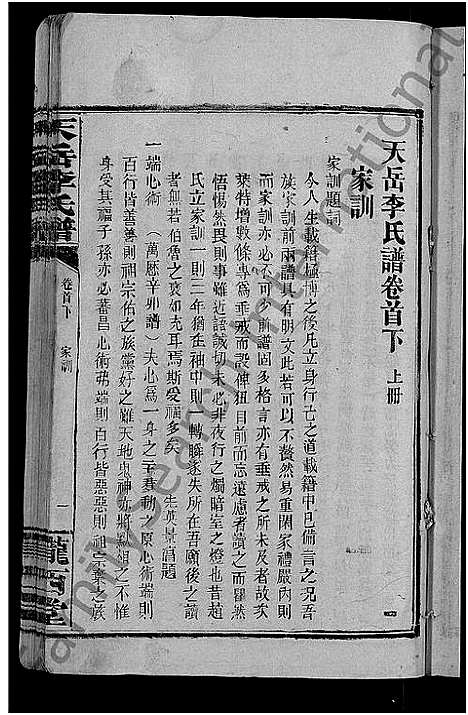 天岳李氏譜卷首下 上冊
家訓
家訓題詞
今人生載籍極博之後凡立身行己之道載籍中已備言之況吾
族家訓前兩譜具有明文此若可以不贅然易重閑家禮嚴內則
而家訓亦必不可多前譜固多格言亦有垂戒之所未及者故
萊特增數條專爲垂戒而設俾狃目前而忘遠慮者讀之而瞿然
悟惕然畏則事雖近語誠切未必非夜行之燭暗室之燈也昔趙
氏立家訓一則三年猶在袖中則轉瞬遂失所在吾願後之讀
者無若伯魯之褎如充耳焉斯受福多矣 先英景高題
一端心術 (萬曆辛卯譜)夫心爲一身之主宰動之原心術端則
百行皆善善則祖宗佑之族黨好之雖天地鬼神亦將默相之不惟
身受其福子孫亦必蕃昌心術弗端則百行皆惡惡則祖宗棄之族
天岳李氏譜
卷首下 家訓
一
隴西堂
FamilySearch International